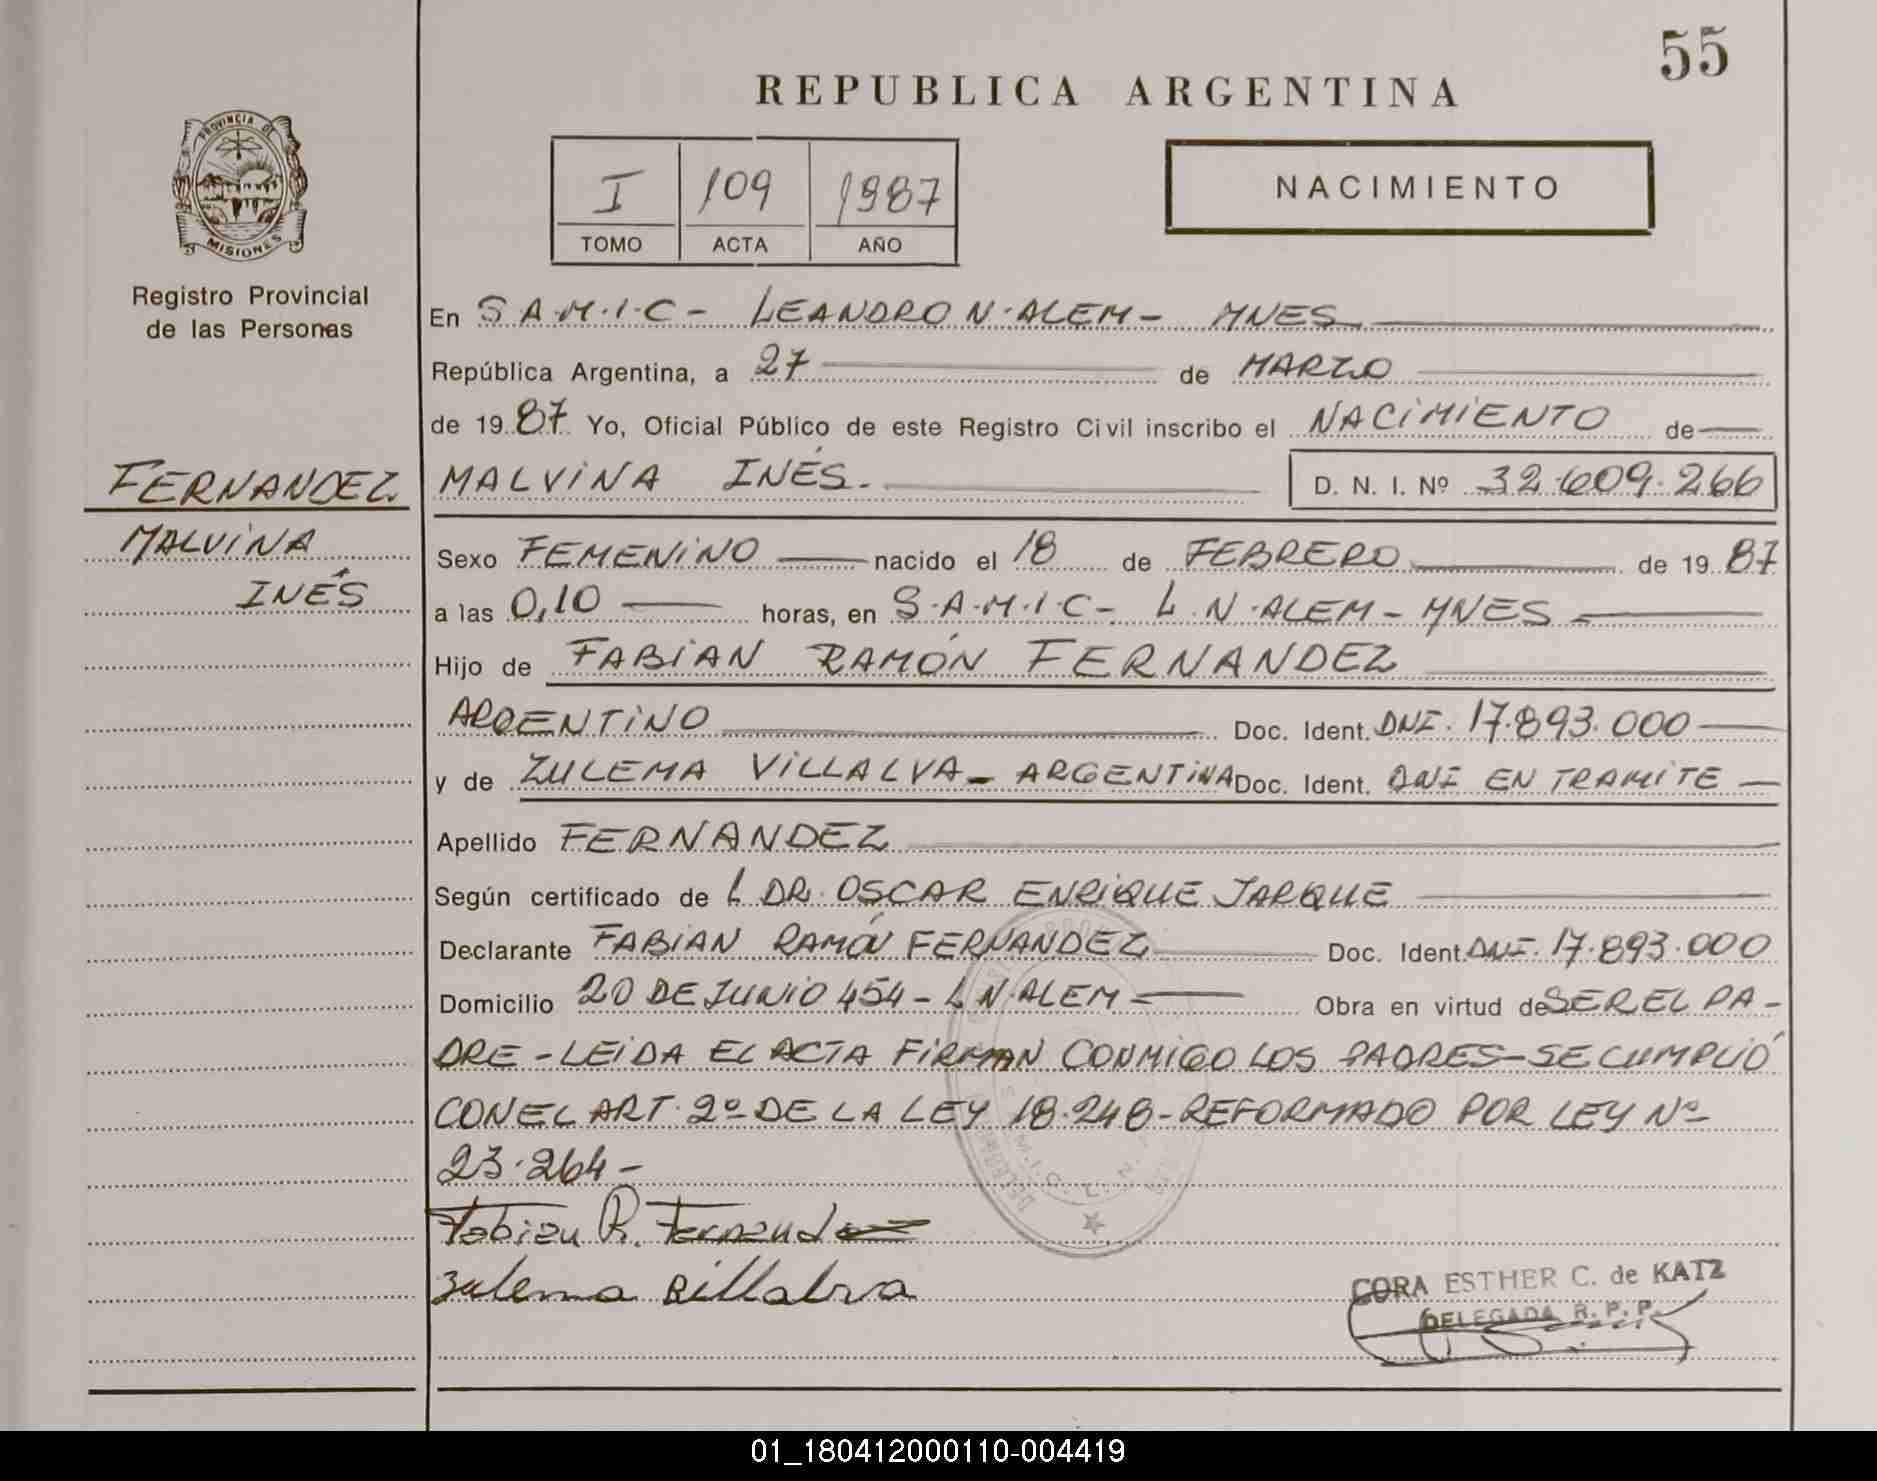 55
REPUBLICA ARGENTINA
PROVINCIA DE
MISIONES
Registro Provincial
de las Personas
I 109 1987
TOMO ACTA AÑO
NACIMIENTO
En S.A.M.I.C- LEANDRO N. ALEM - MNES
República Argentina, a 27 de MARZO
de 1987 Yo, Oficial Público de este Registro Civil inscribo el NACIMIENTO de
FERNANDEZ
MALVINA
INÉS
MALVINA INÉS. D. N. I. Nº 32.609.266
Sexo FEMENINO nacido el 18 de FEBRERO de 1987
a las 0,10 horas, en S.A.M.I.C-. L.N.ALEM - MNES
Hijo de FABIAN RAMÓN FERNANDEZ
ARGENTINO Doc. Ident. DNI. 17.893.000
y de ZULEMA VILLALVA - ARGENTINA Doc. Ident. DNI EN TRAMITE
Apellido FERNANDEZ
Según certificado de L DR. OSCAR ENRIQUE JARQUE
Declarante FABIAN RAMÓN FERNANDEZ Doc. Ident. DNI. 17.893.000
Domicilio 20 DE JUNIO 454 - L N. ALEM - Obra en virtud de SER EL PA-
DRE - LEIDA EL ACTA FIRMAN CONMIGO LOS PADRES - SE CUMPLIÓ
CON EL ART. 2º DE LA LEY 18.248 - REFORMADO POR LEY Nº
23.264 -
Fabian R. Fernandez
Zulema Billalva
CORA ESTHER C. de KATZ
DELEGADA R. P. P.
01_180412000110-004419